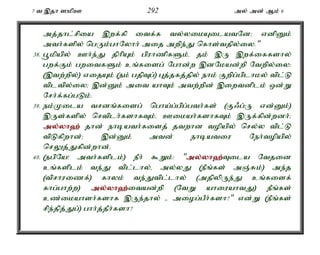 7 வ இதா ஸமிஊ 292 அல் அன் ஆம் 6
அத்தாட்சியை இறக்கி வைக்க வல்லமையுடையவனே; எனினும்
அவர்களில் பெரும்பாலோர் அதை அறிந்து கொள்வதில்லை."
38. பூமியில் ஊர்ந்து திரியும் பிராணிகளும், தம் இரு இறக்கைகளால்
பறக்கும் பறவைகளும் உங்களைப் போன்ற இனமேயன்றி வேறில்லை;
(இவற்றில்) எதையும் (நம் பதிவுப்) புத்தகத்தில் நாம் குறிப்பிடாமல் விட்டு
விடவில்லை; இன்னும் அவை யாவும் அவற்றின் இறைவனிடம் ஒன்று
சேர்க்கப்படும்.
39. நம்முடைய வசனங்களைப் பொய்ப்பிப்பவர்கள் (குஃப்ரு என்னும்)
இருள்களில் செவிடர்களாகவும், ஊமையர்களாகவும் இருக்கின்றனர்;
அல்லாஹ் தான் நாடியவர்களைத் தவறான வழியில் செல்ல விட்டு
விடுகிறான்; இன்னும் அவன் நாடியவரை நேர்வழியில்
செலுத்துகின்றான்.
40. (நபியே! அவர்களிடம்) நீர் கூறும்: "அல்லாஹ்வுடைய வேதனை
உங்களிடம் வந்து விட்டால், அல்லது (நீங்கள் அஞ்சும்) அந்த
(விசாரணைக்) காலம் வந்துவிட்டால் (அதிலிருந்து உங்களைக்
காப்பாற்ற) அல்லாஹ்வையன்றி (வேறு யாரையாவது) நீங்கள்
உண்மையாளர்களாக இருந்தால் - அழைப்பீர்களா?" என்று (நீங்கள்
சிந்தித்துப்) பார்த்தீர்களா?